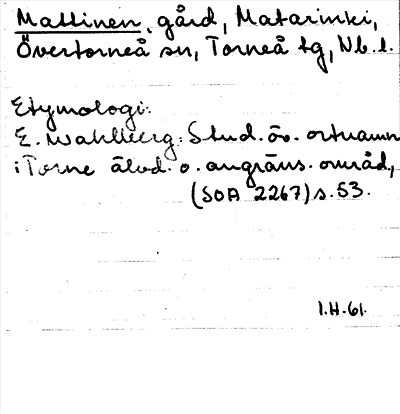 Mattinen, gård, Matarinki,
Övertorneå sn, Torneå tg, Nb. l.
Etymologi:
E. Wahlberg: Stud. öv. ortnamn
i Torne älvd. o. angräns. områd,
(SOA 2267) s. 53.
I.H.-61.